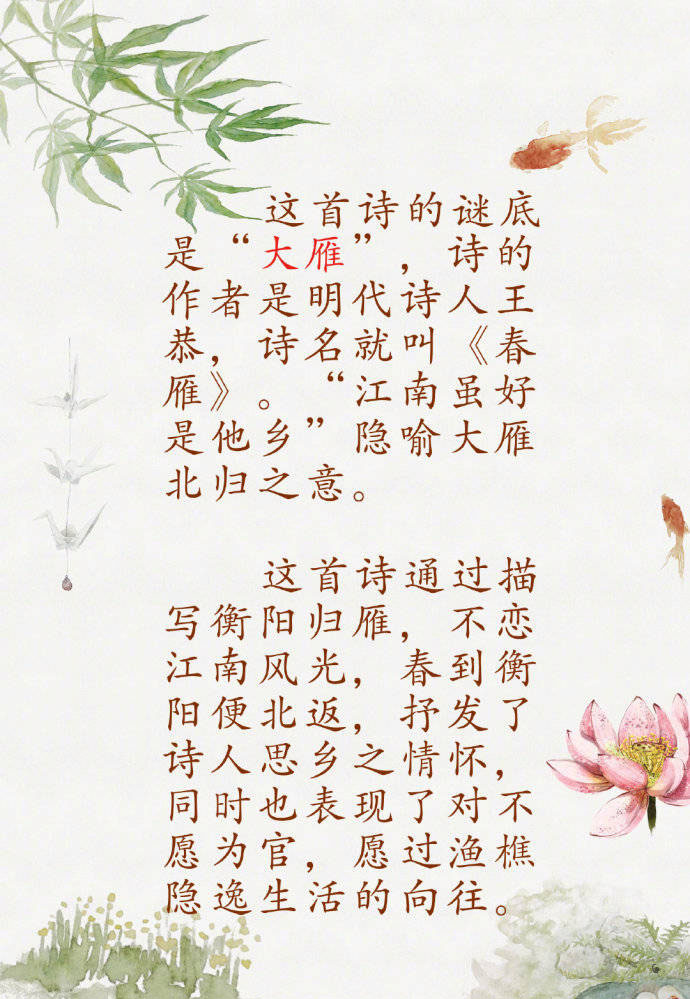 这首诗的谜底
是“大雁”，诗的
作者是明代诗人王
恭，诗名就叫《春
雁》。“江南虽好
是他乡”隐喻大雁
北归之意。
这首诗通过描
写衡阳归雁，不恋
江南风光，春到衡
阳便北返，抒发了
诗人思乡之情怀，
同时也表现了对不
愿为官，愿过渔樵
隐逸生活的向往。